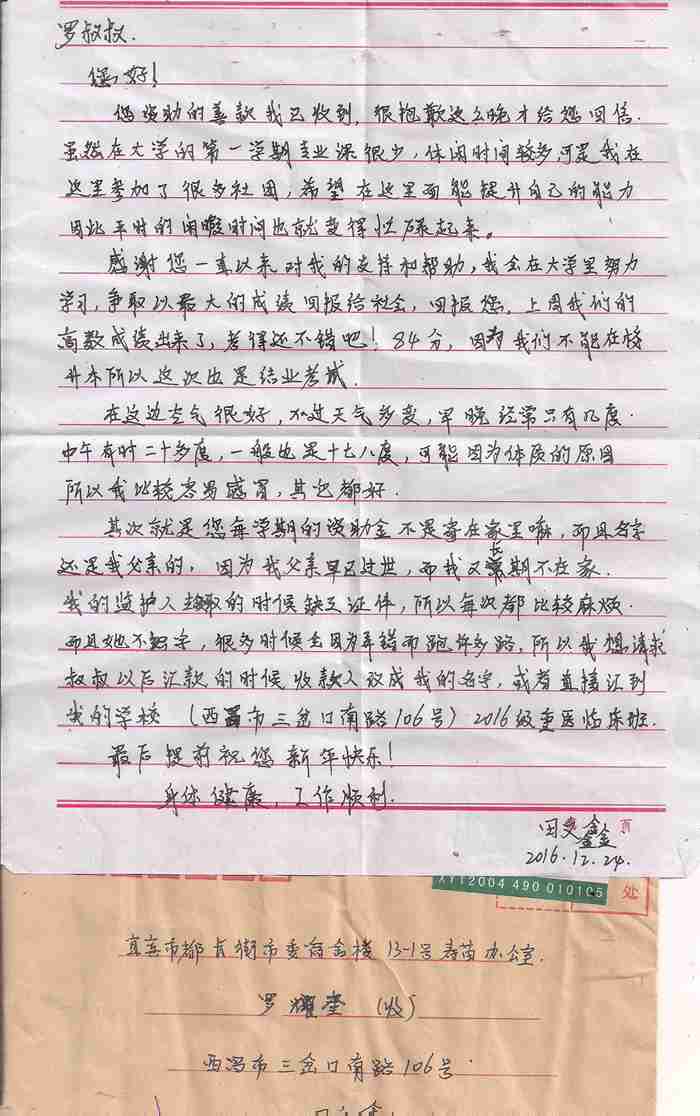 罗叔叔.
您好!
您资助的善款我已收到,很抱歉这么晚才给您回信.
虽然在大学的第一学期专业课很少,休闲时间较多,可是我在
这里参加了很多社团,希望在这里面能提升自己的能力
因此平时的闲暇时间也就变得忙碌起来。
感谢您一直以来对我的支持和帮助,我会在大学里努力
学习,争取以最大的成绩回报给社会,回报您,上周我们的
高数成绩出来了,考得还不错吧!84分,因为我们不能在校
升本所以这次也是结业考试.
在这边空气很好,不过天气多变,早晚经常只有几度.
中午有时二十多度,一般也是十七八度,可能因为体质的原因
所以我比较容易感冒,其它都好.
其次就是您每学期的资助金不是寄在家里嘛,而且名字
还是我父亲的,因为我父亲早已过世,而我又长期不在家.
我的监护人去取的时候缺乏证件,所以每次都比较麻烦.
而且她不识字,很多时候会因为弄错而跑许多路,所以我想请求
叔叔以后汇款的时候收款人改成我的名字,或者直接汇到
我的学校(西昌市三岔口南路106号)2016级重医临床班.
最后提前祝您新年快乐!
身体健康,工作顺利.
田 鑫 页
2016.12.24.
XY12004 490 010105 处
宜宾市都长街市委宿舍楼13-1号 办公室.
罗耀 (收)
西昌市三岔口南路106号.